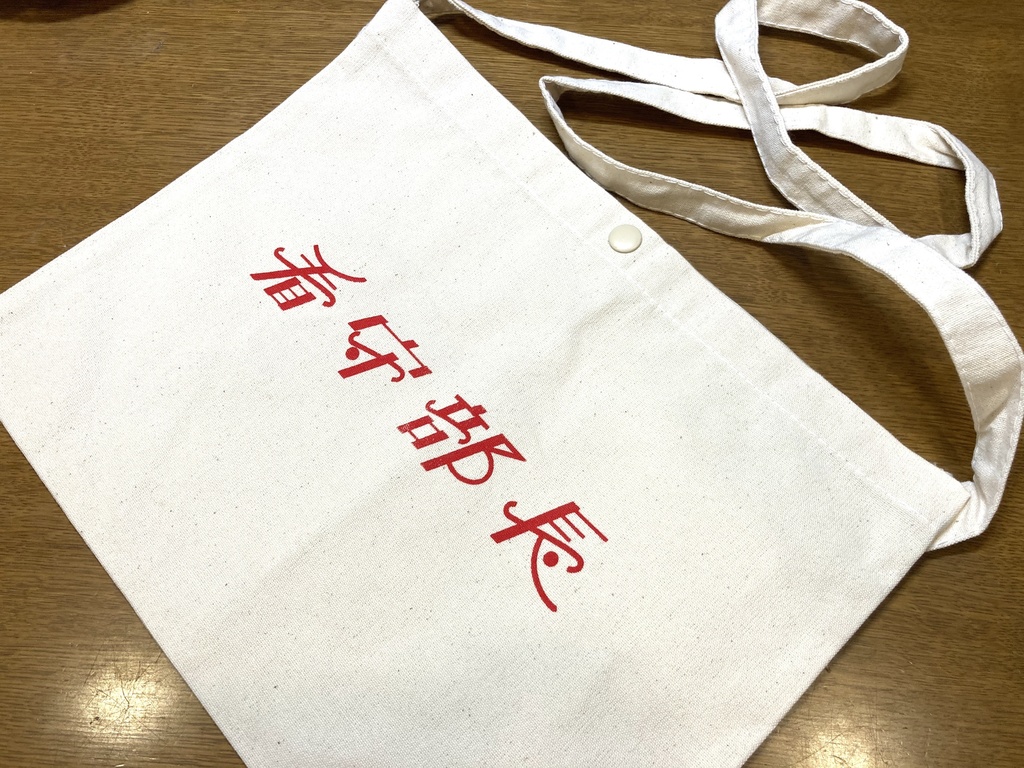 看守部長